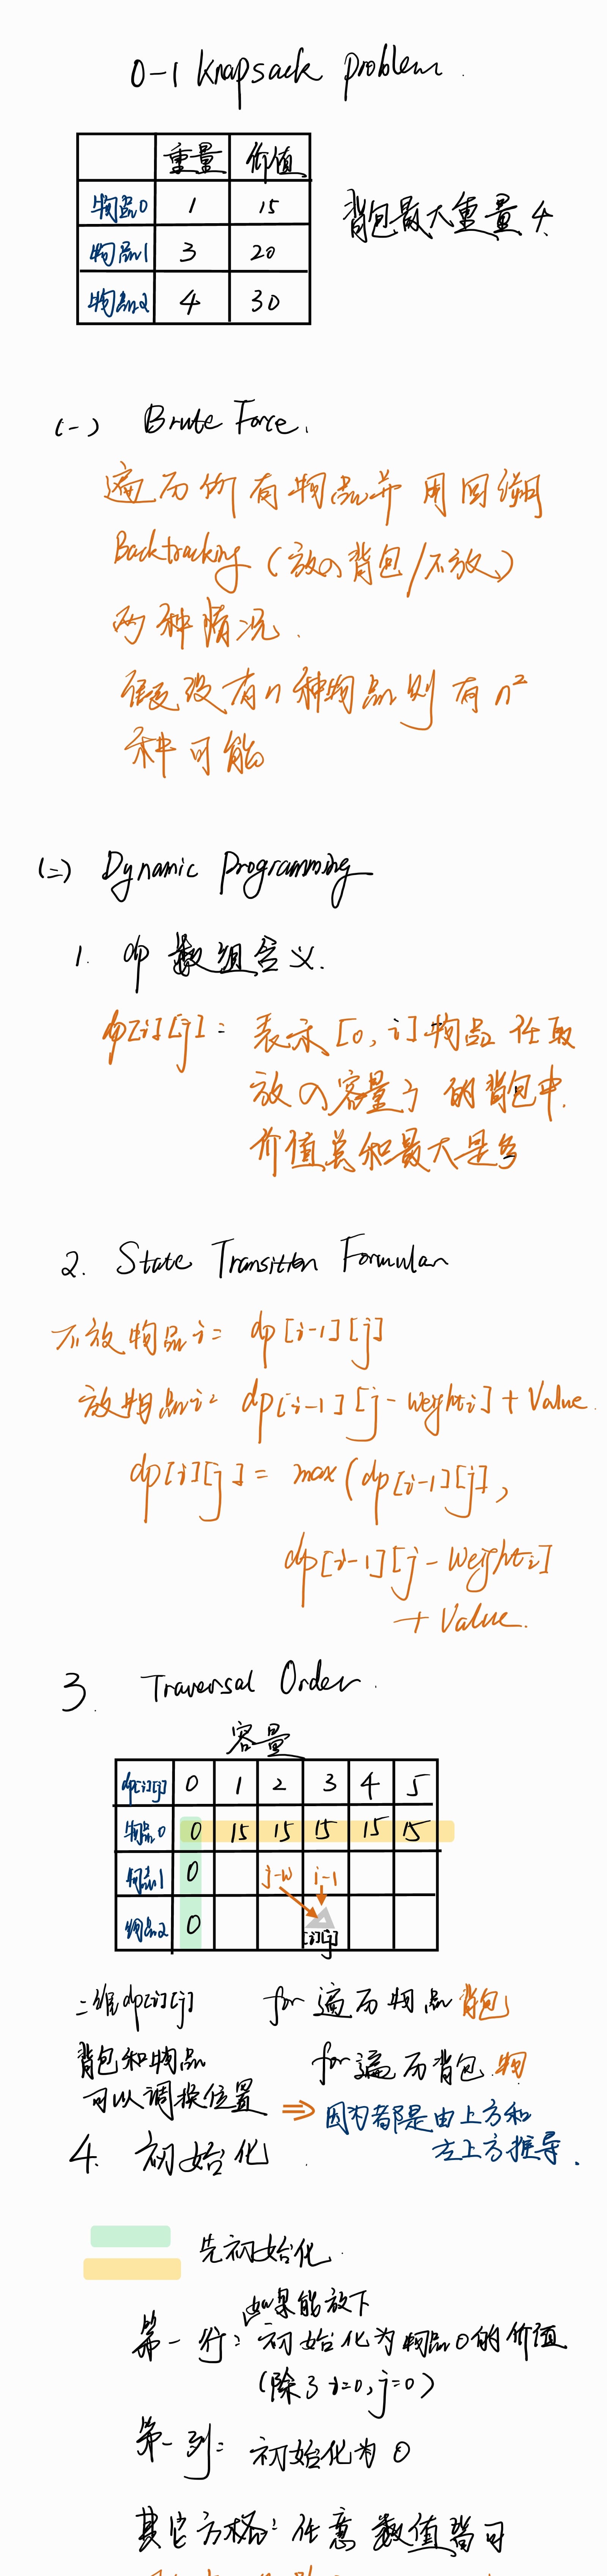 0-1 Knapsack problem.
重量 价值
物品0 1 15
物品1 3 20
物品2 4 30
背包最大重量 4
(一) Brute Force.
遍历所有物品并用回溯
Backtracking (放入背包/不放入)
两种情况.
假设没有n种物品则有n²
种可能
(二) Dynamic Programming
1. dp 数组含义.
dp[i][j]: 表示[0, i]物品任取
放入容量j的背包中.
价值总和最大是多
2. State Transition Formular
不放物品i: dp[i-1][j]
放物品i: dp[i-1][j-weighti]+Value
dp[i][j] = max(dp[i-1][j],
dp[i-1][j-weighti]
+ Value.
3. Traversal Order.
容量
dp[i][j] 0 1 2 3 4 5
物品0 0 15 15 15 15 15
物品1 0 j-w i-1
物品2 0 [i][j]
二维dp[i][j] for 遍历物品 背包
背包和物品 for 遍历背包 物
可以调换位置 ⇒ 因为都是由上方和
左上方推导.
4. 初始化.
先初始化.
如果能放下
第一行: 初始化为物品0的价值
(除了i=0, j=0)
第一列: 初始化为0
其它方格: 任意数值皆可